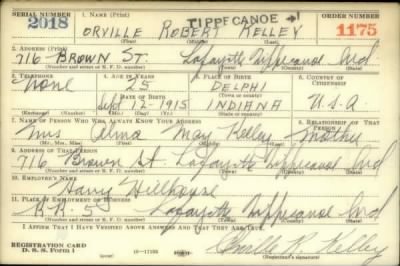 SERIAL NUMBER 1. NAME (Print) TIPPECANOE ORDER NUMBER
2018 ORVILLE ROBERT KELLEY 1175
(First) (Middle) (Last)
2. ADDRESS (Print)
716 BROWN ST. Lafayette Tippecanoe Ind
(Number and street or R. F. D. number) (Town) (County) (State)
3. TELEPHONE 4. AGE IN YEARS 5. PLACE OF BIRTH 6. COUNTRY OF CITIZENSHIP
none 25 DELPHI
DATE OF BIRTH (Town or county)
Sept 12-1915 INDIANA U.S.A.
(Mo.) (Day) (Yr.) (State or country)
7. NAME OF PERSON WHO WILL ALWAYS KNOW YOUR ADDRESS 8. RELATIONSHIP OF THAT PERSON
Mrs Alma May Kelley Mother
(Mr., Mrs., Miss) (First) (Middle) (Last)
9. ADDRESS OF THAT PERSON
716 Brown St. Lafayette Tippecanoe Ind
(Number and street or R. F. D. number) (Town) (County) (State)
10. EMPLOYER'S NAME
Harry
11. PLACE OF EMPLOYMENT OR BUSINESS
R.R. 5 Lafayette Tippecanoe Ind
(Number and street or R. F. D. number) (Town) (County) (State)
I AFFIRM THAT I HAVE VERIFIED ABOVE ANSWERS AND THAT THEY ARE TRUE.
REGISTRATION CARD
D. S. S. Form 1 Orville R. Kelley
(Registrant's signature)